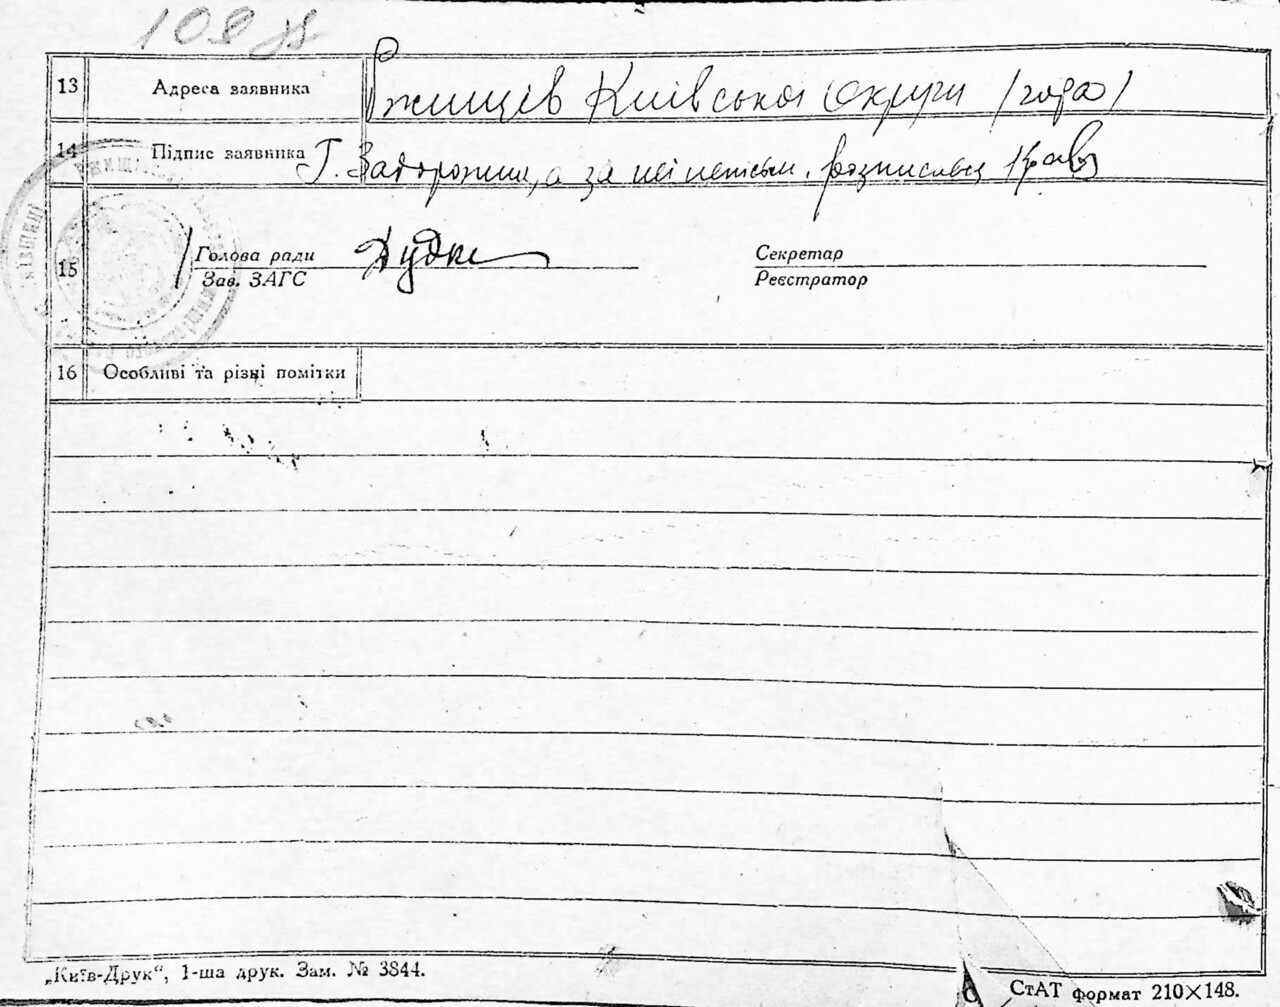 108
13 Адреса заявника Ржищев Київської Округи
14 Підпис заявника Г. Задорожня, а за неї неписьм. розписався Кравз
15 Голова ради Дудка Секретар
Зав. ЗАГС Реєстратор
16 Особливі та різні помітки
„Київ-Друк“, 1-ша друк. Зам. № 3844.
СтАТ формат 210×148.